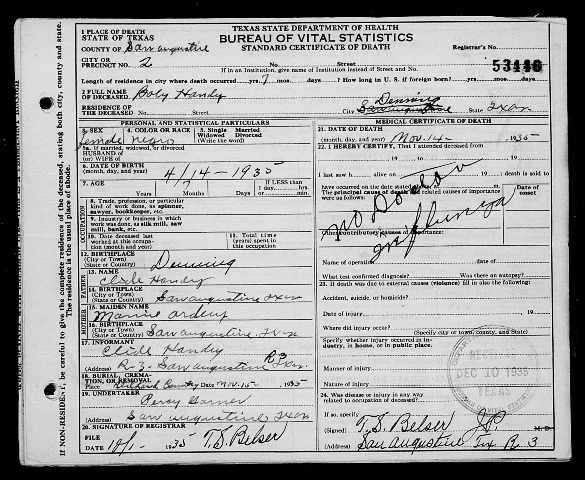 TEXAS STATE DEPARTMENT OF HEALTH
BUREAU OF VITAL STATISTICS
STANDARD CERTIFICATE OF DEATH
1 PLACE OF DEATH
STATE OF TEXAS
COUNTY OF San augustine
Registrar's No.
CITY OR PRECINCT NO. 2 No. Street
If in an Institution, give name of Institution instead of Street and No.
Length of residence in city where death occurred yrs. 7 mos. days. How long in U. S. if foreign born? yrs. mos. days.
2 FULL NAME OF DECEASED Boby Handy
RESIDENCE OF THE DECEASED No. Street City Denning San augustine State Texas
PERSONAL AND STATISTICAL PARTICULARS
3. SEX 4. COLOR OR RACE 5. Single Married Widowed Divorced (Write the word)
female negro
5a. If married, widowed, or divorced
HUSBAND OF
(or) WIFE OF
6. DATE OF BIRTH (month, day, and year) 4/14-1935
7. AGE Years Months Days If LESS than 1 day, hrs. or min.
7
OCCUPATION
8. Trade, profession, or particular kind of work done, as spinner, sawyer, bookkeeper, etc.
9. Industry or business in which work was done, as silk mill, saw mill, bank, etc.
10. Date deceased last worked at this occupation (month and year)
11. Total time (years) spent in this occupation
12. BIRTHPLACE (City or Town) (State or Country) Denning
FATHER
13. NAME
Clide Handy
14. BIRTHPLACE (City or Town) (State or Country) San augustine Texas
MOTHER
15. MAIDEN NAME
Mannie Ardens
16. BIRTHPLACE (City or Town) (State or Country) San augustine, Tex
17. INFORMANT
Clide Handy R3
(Address) R-3- San augustine Tex.
18. BURIAL, CREMATION, OR REMOVAL
Date Nov. 15- 1935
19. UNDERTAKER
Percy Garner
(Address) San augustine Texas
20. SIGNATURE OF REGISTRAR
FILE DATE 1935 T.S. Belser
MEDICAL CERTIFICATE OF DEATH
21. DATE OF DEATH (month, day, and year) Nov. 14- 1935
22. I HEREBY CERTIFY, That I attended deceased from
19 to 19
I last saw h alive on 19 death is said to have occurred on the date stated
The principal cause of death and related causes of importance were as follows:
Date of onset
no Doctor
Influenza
Other contributory causes of importance:
Name of operation
What test confirmed diagnosis? Was there an autopsy?
23. If death was due to external causes (violence) fill in also the following:
Accident, suicide, or homicide?
Date of injury 19
Where did injury occur? (Specify city or town, county, and State)
Specify whether injury occurred in industry, in home, or in public place.
Manner of injury
Nature of injury
RECEIVED
DEC 10 1935
TEXAS
24. Was disease or injury in any way related to occupation of deceased?
If so, specify
(Signed) T.S. Belser J.P. M. D.
(Address) San augustine Tex R 3
If NON-RESIDENT, be careful to give the complete residence of the deceased, stating both city, county and state.
The residence is the usual place of abode.